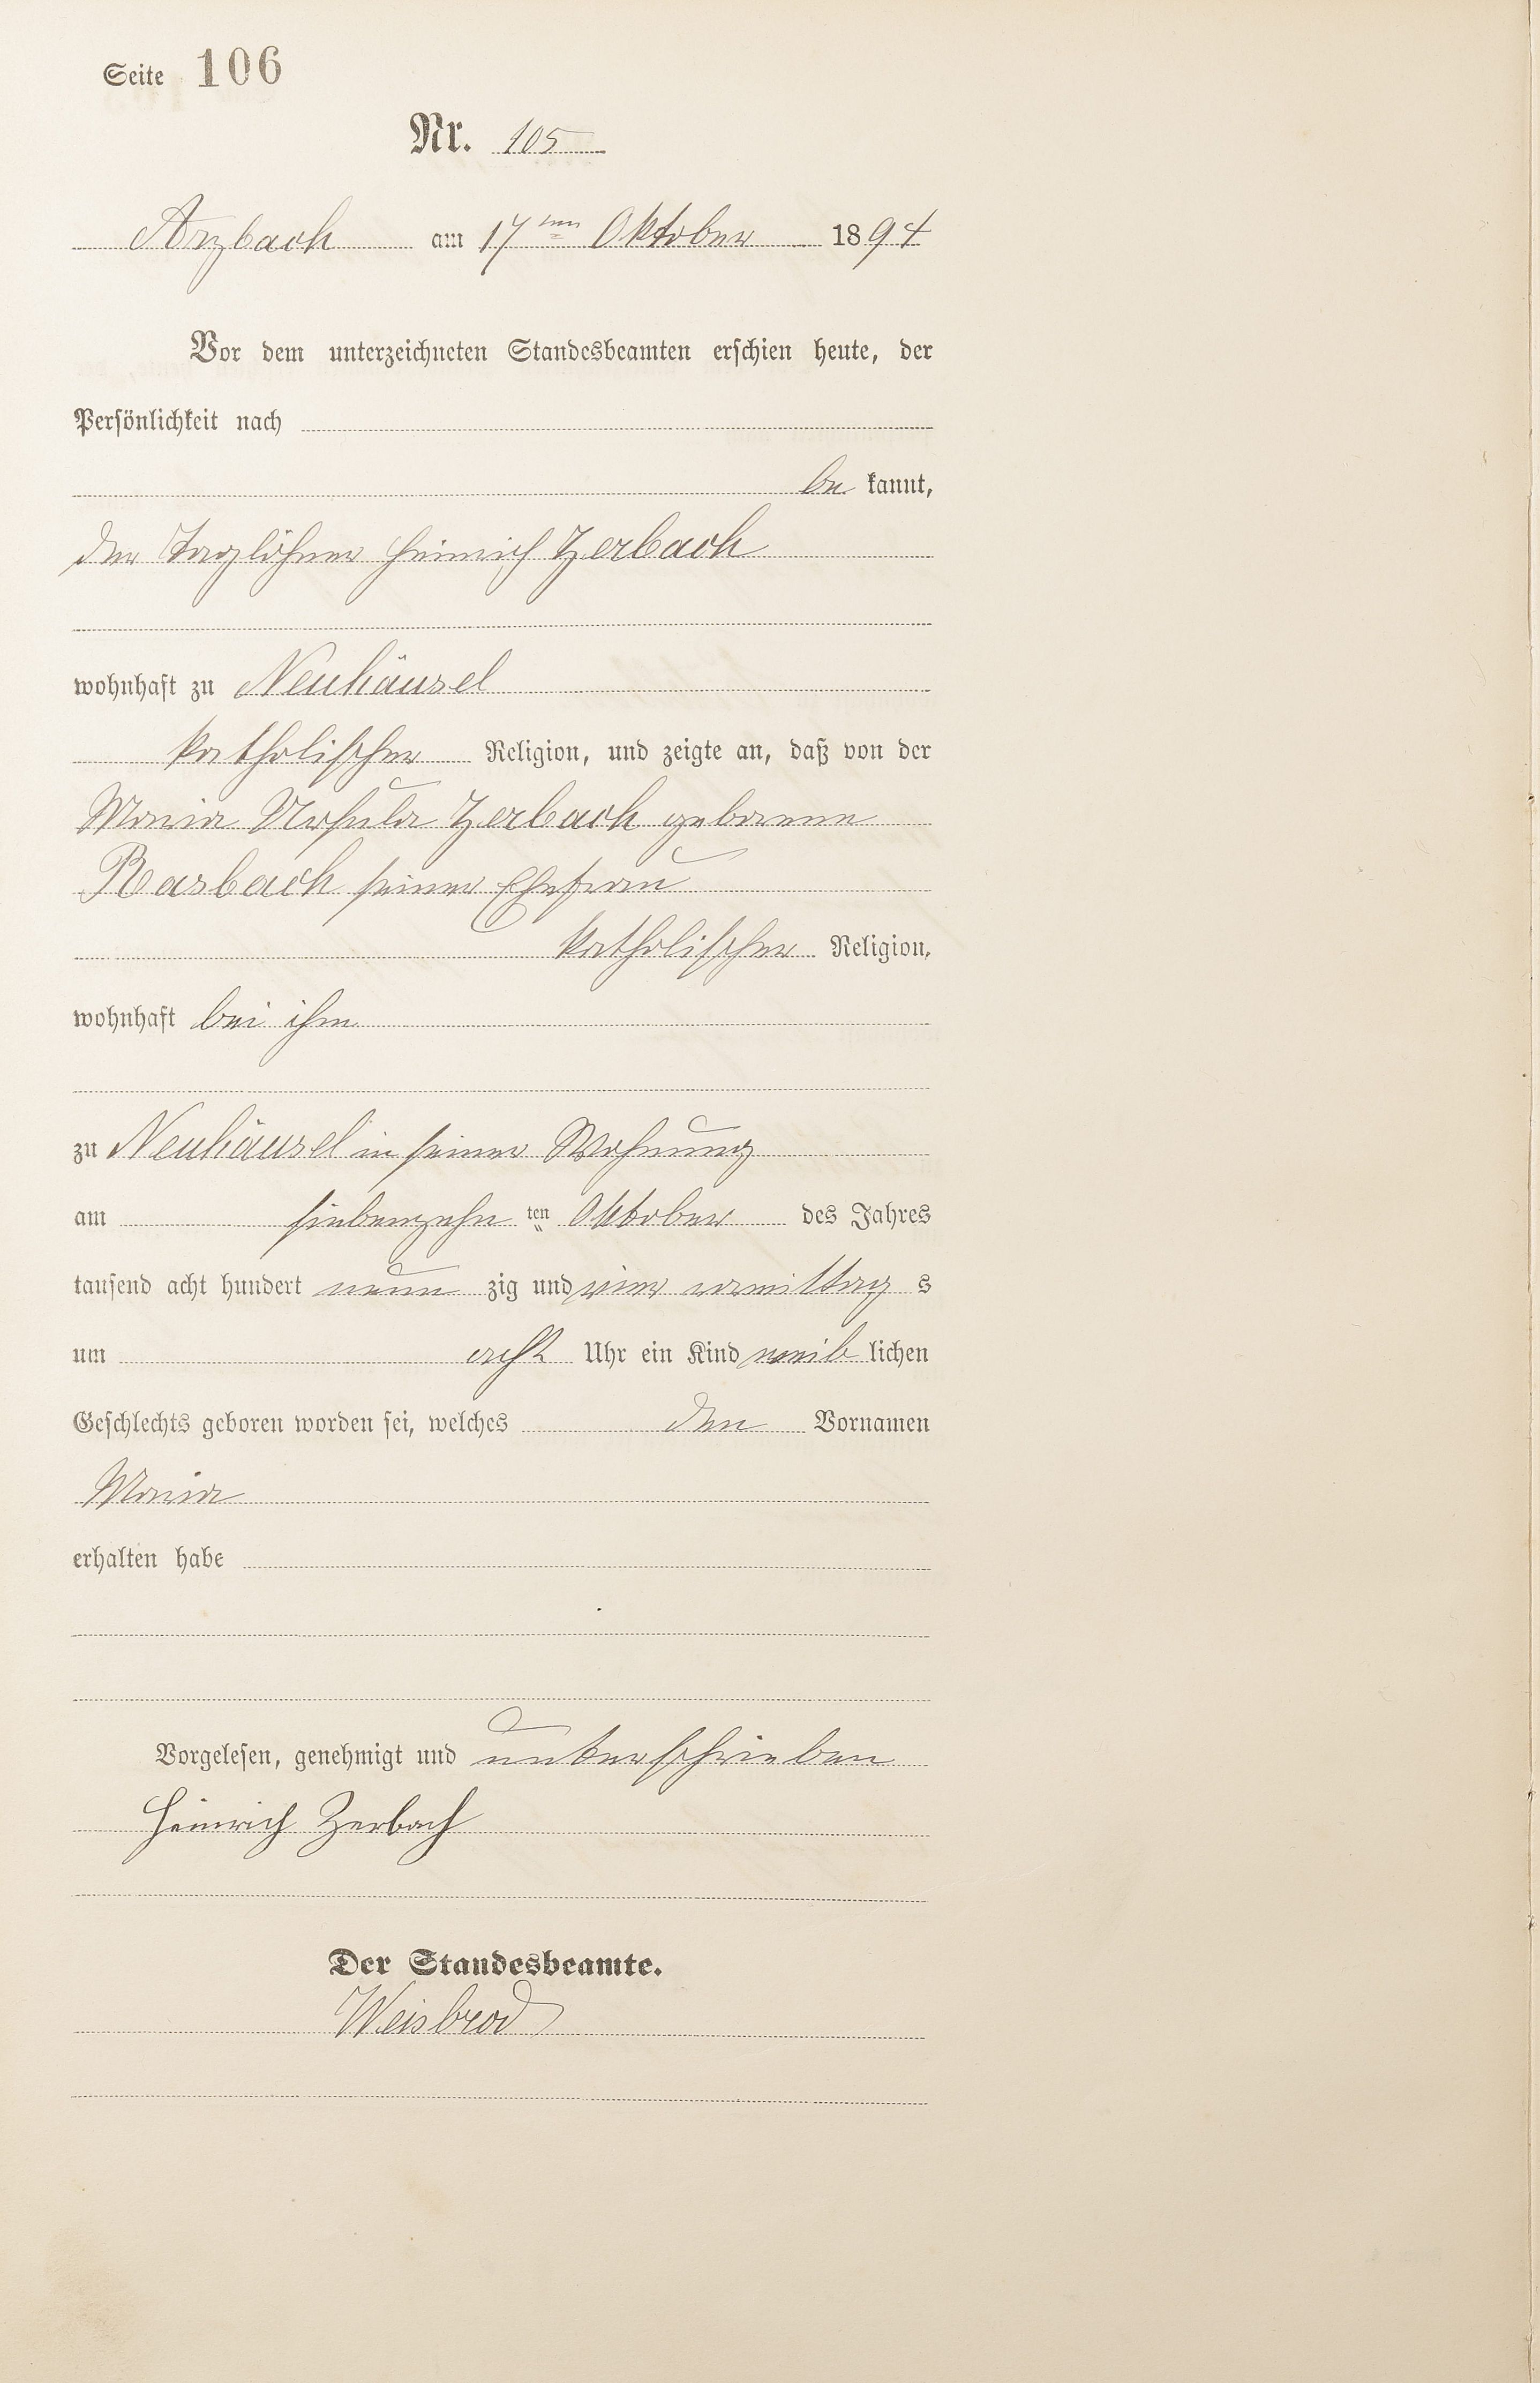 Seite 106
Nr. 105
Arzbach am 17ten Oktober 1894
Vor dem unterzeichneten Standesbeamten erschien heute, der
Persönlichkeit nach
be kannt,
der Taglöhner Heinrich Zerbach
wohnhaft zu Neuhäusel
katholischer Religion, und zeigte an, daß von der
Maria Ursula Zerbach geborene
Rasbach seiner Ehefrau
katholischer Religion,
wohnhaft bei ihm
zu Neuhäusel in seiner Wohnung
am siebenzehn ten Oktober des Jahres
tausend acht hundert neun zig und vier vormittag s
um acht Uhr ein Kind weib lichen
Geschlechts geboren worden sei, welches den Vornamen
Maria
erhalten habe
Vorgelesen, genehmigt und unterschrieben
Heinrich Zerbach
Der Standesbeamte.
Weisbrod